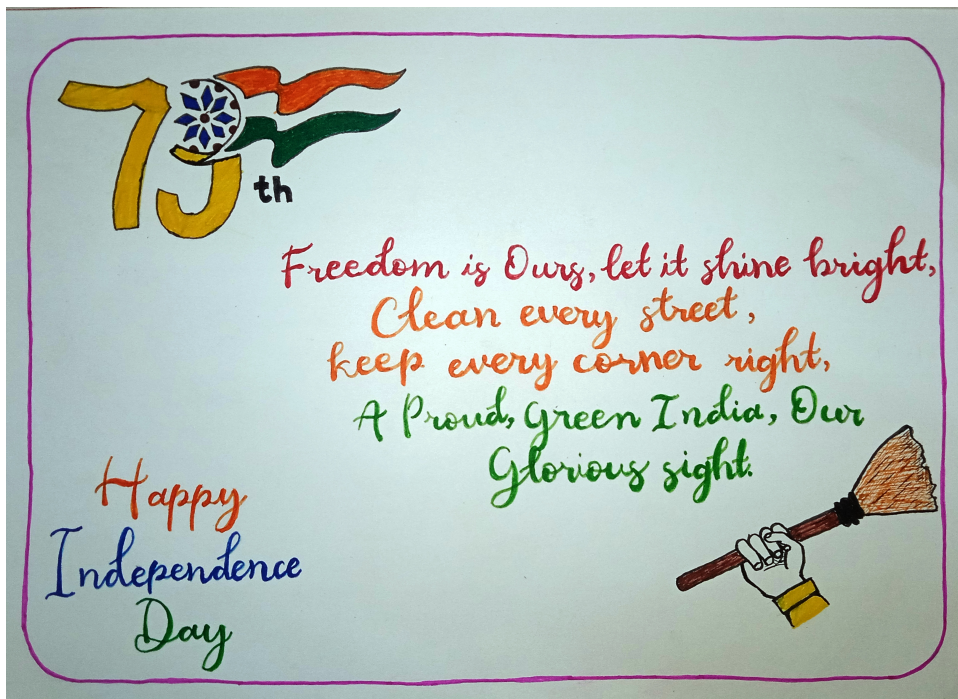 75th
Freedom is Ours, let it shine bright,
Clean every street,
keep every corner right,
A Proud, Green India, Our
Glorious sight.
Happy
Independence
Day